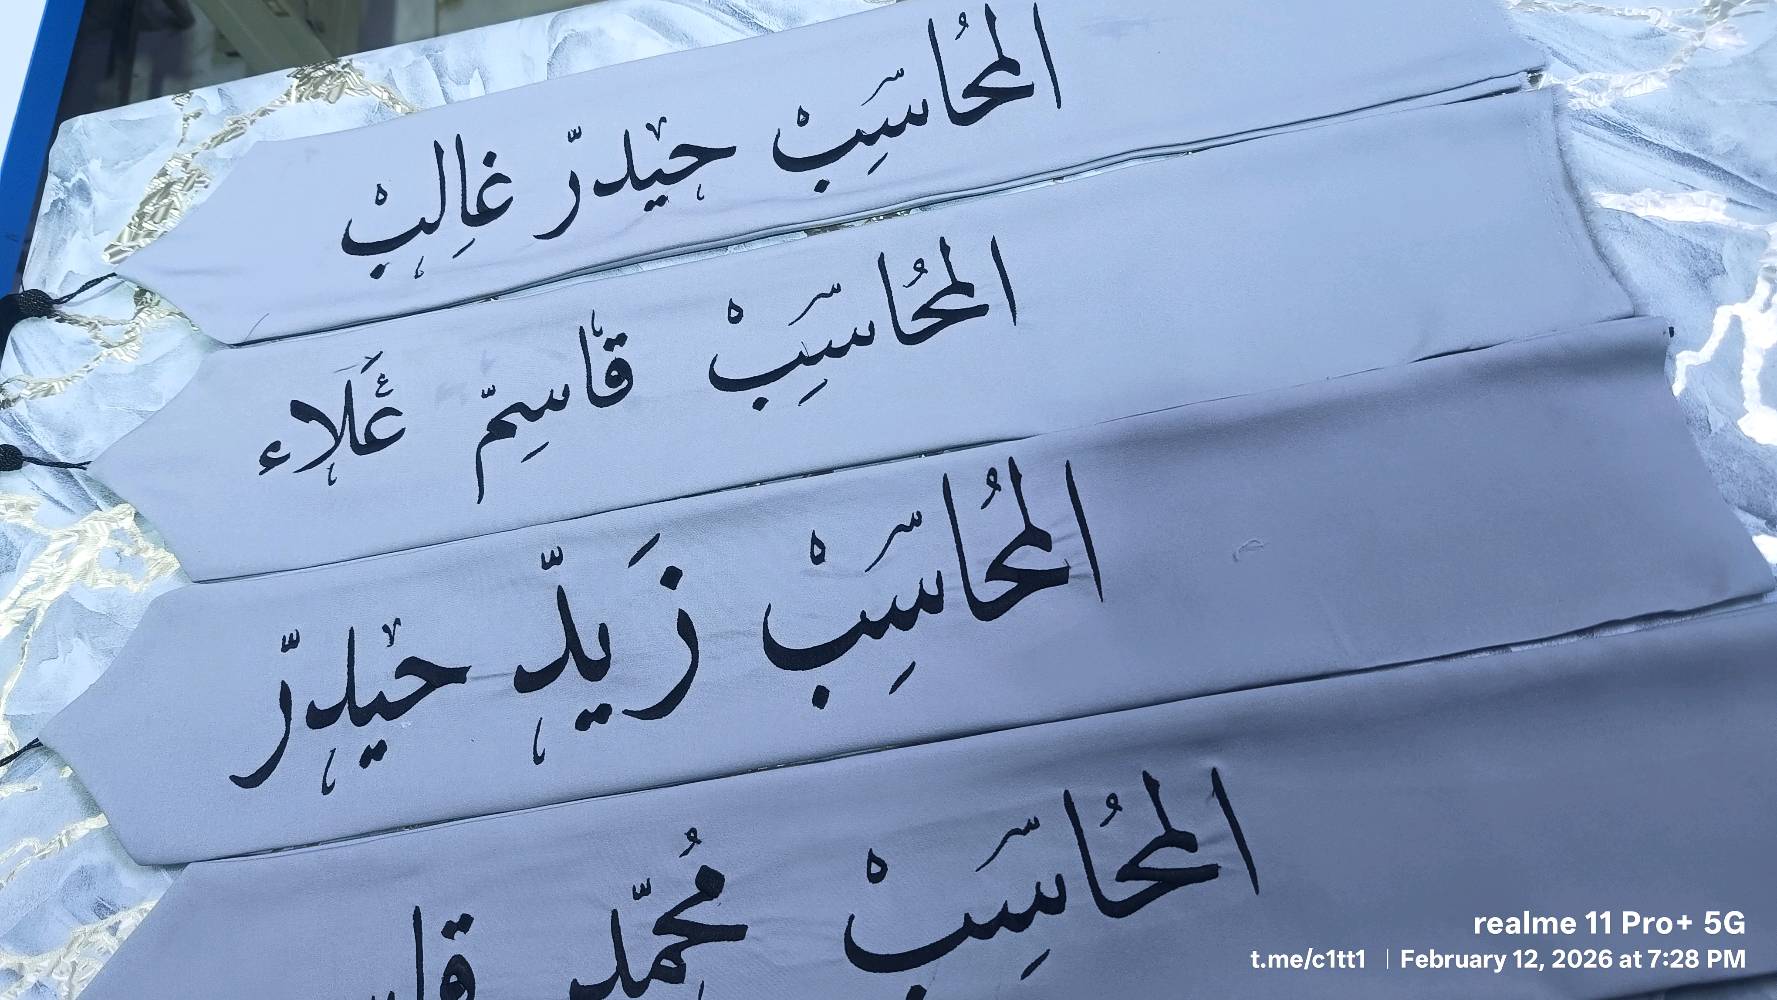 المحُاسِبْ حيْدرّ غالِبْ
المحُاسَِبْ قاسِمّ عَلاء
المحُاسَِبْ زَيدّ حيْدرّ
المحُاسَِبْ مُحمّد
realme 11 Pro+ 5G
t.me/c1tt1 | February 12, 2026 at 7:28 PM